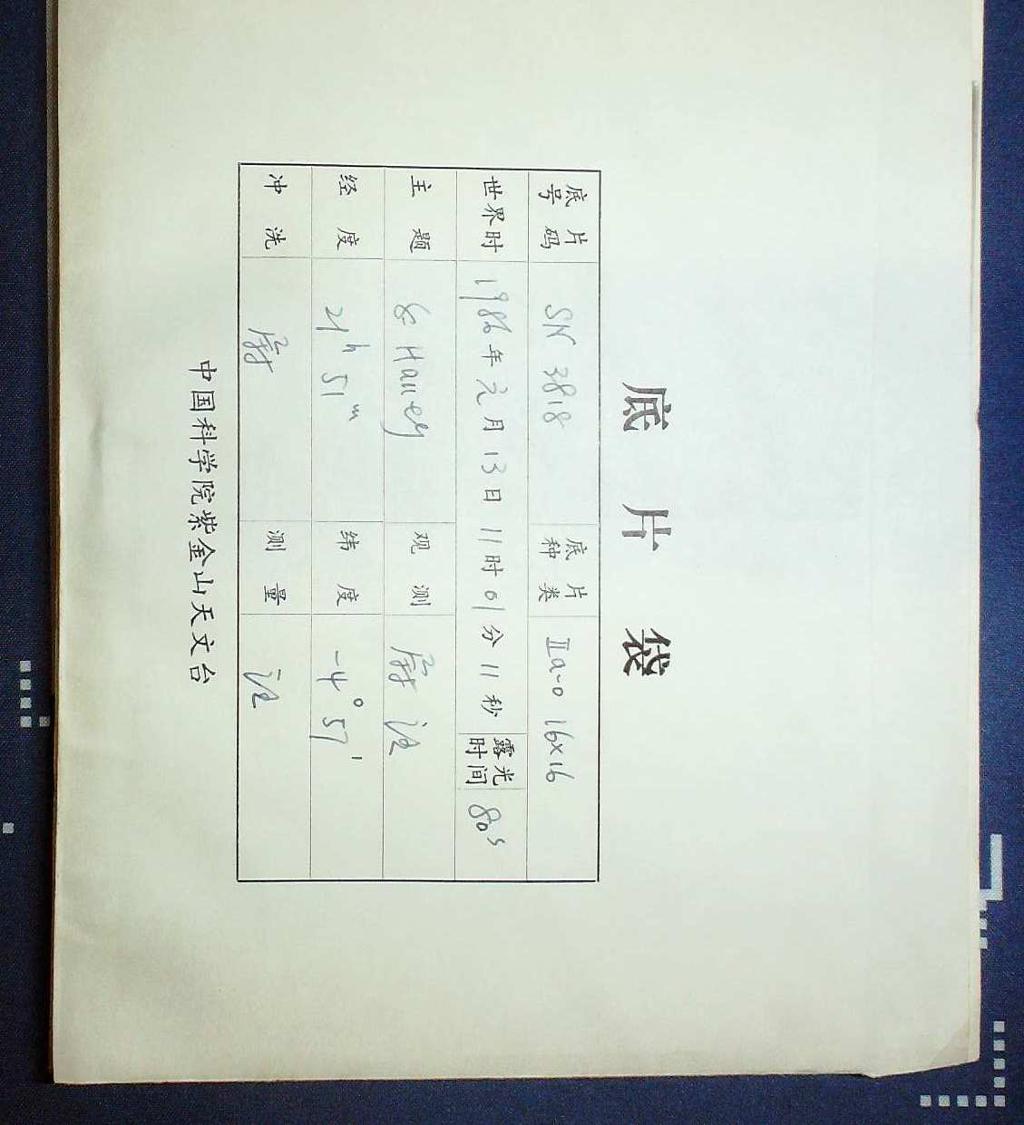 底片袋
底片号码 SN 3818 底片种类 IIa-0 16×16
世界时 1986年元月13日11时01分11秒 露光时间 80s
主题 Halley 观测
经度 21h 51m 纬度 -4° 57'
冲洗 测量
中国科学院紫金山天文台